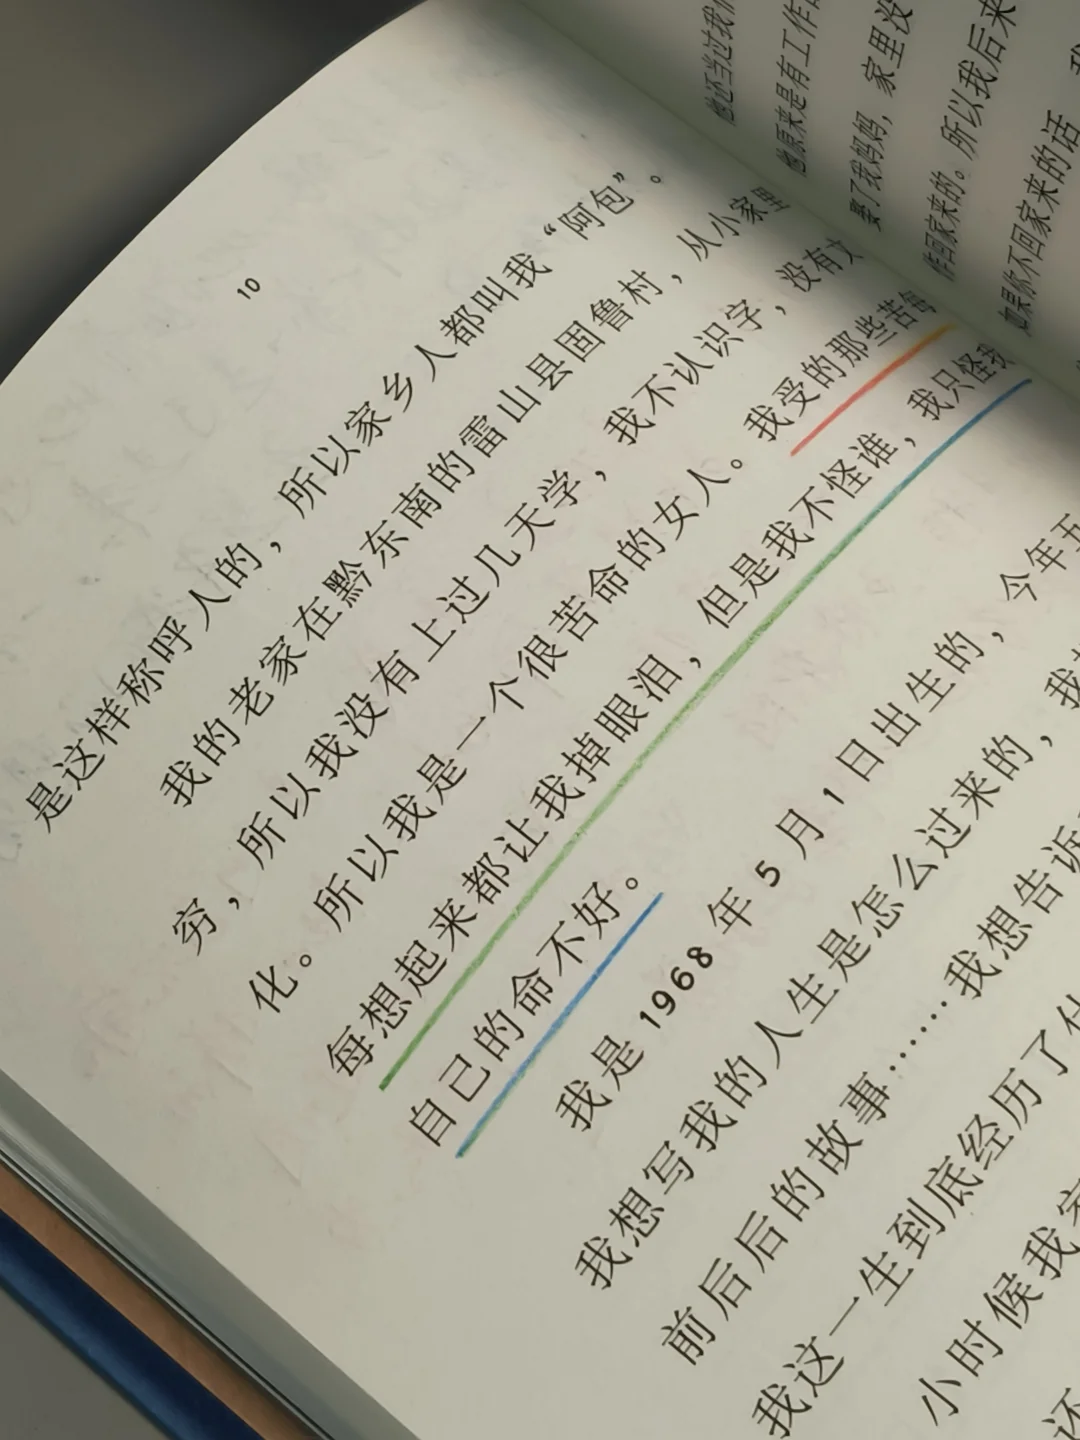 10
是这样称呼人的，所以家乡人都叫我“阿包”。
我的老家在黔东南的雷山县固鲁村，从小家里
穷，所以我没有上过几天学，我不认识字，没有文
化。所以我是一个很苦命的女人。我受的那些苦每
每想起来都让我掉眼泪，但是我不怪谁，我只怪我
自己的命不好。
我是1968年5月1日出生的，今年五
我想写我的人生是怎么过来的，我
前前后后的故事……我想告诉
我这一生到底经历了什
小时候我家
还
他还当过我们
他原来是有工作
娶了我妈妈，家里没
作回家来的。所以我后来
如果你不回家来的话